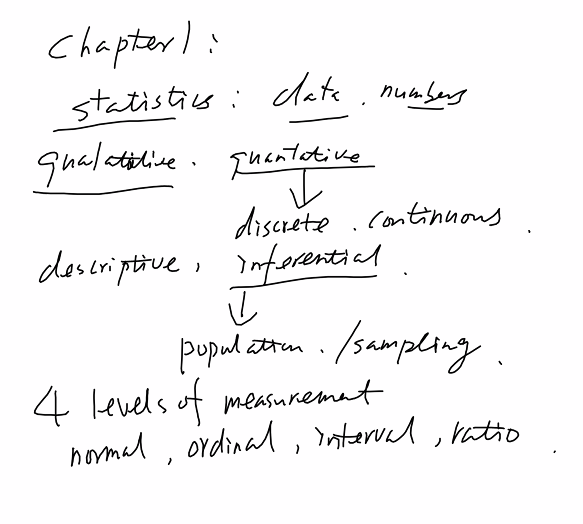 Chapter 1:
statistics: data. numbers
qualatative. quantative
discrete. continuous.
descriptive, inferential.
population. /sampling.
4 levels of measurement
normal, ordinal, interval, ratio.